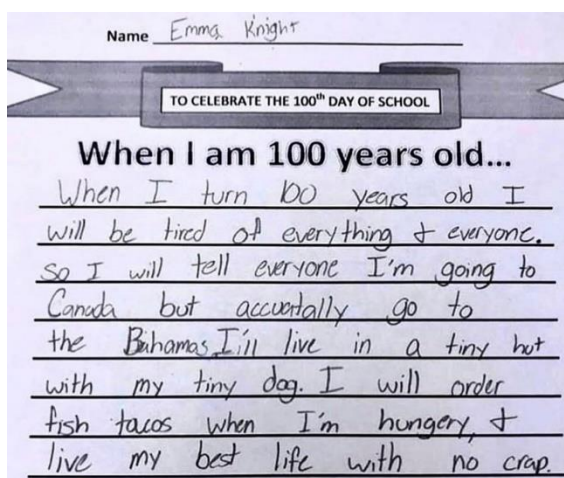 Name Emma Knight
TO CELEBRATE THE 100th DAY OF SCHOOL
When I am 100 years old...
When I turn 100 years old I
will be tired of everything & everyone.
So I will tell everyone I'm going to
Canada but accuartally go to
the Bahamas I'ill live in a tiny hut
with my tiny dog. I will order
fish tacos when I'm hungery, &
live my best life with no crap.